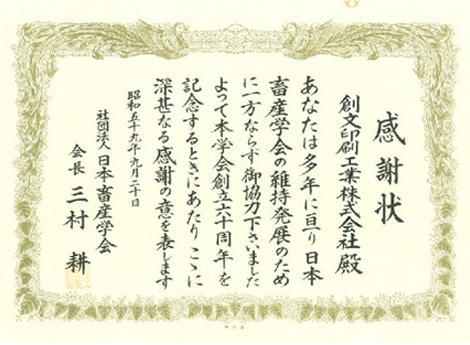 感謝状
創文印刷工業株式会社殿
あなたは多年に亘り日本
畜産学会の維持発展のため
に一方ならず御協力下さいました
よって本学会創立六十周年を
記念するときにあたりこゝに
深甚なる感謝の意を表します
昭和五十九年九月二十日
社団法人日本畜産学会
会長 三村 耕